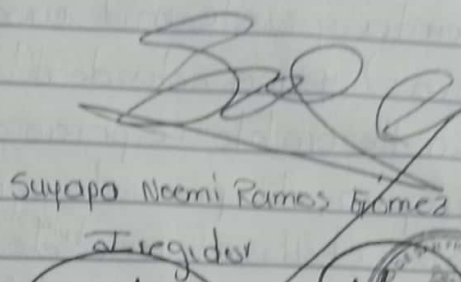 Suyapa Noemi Ramos Gómez
I regidor